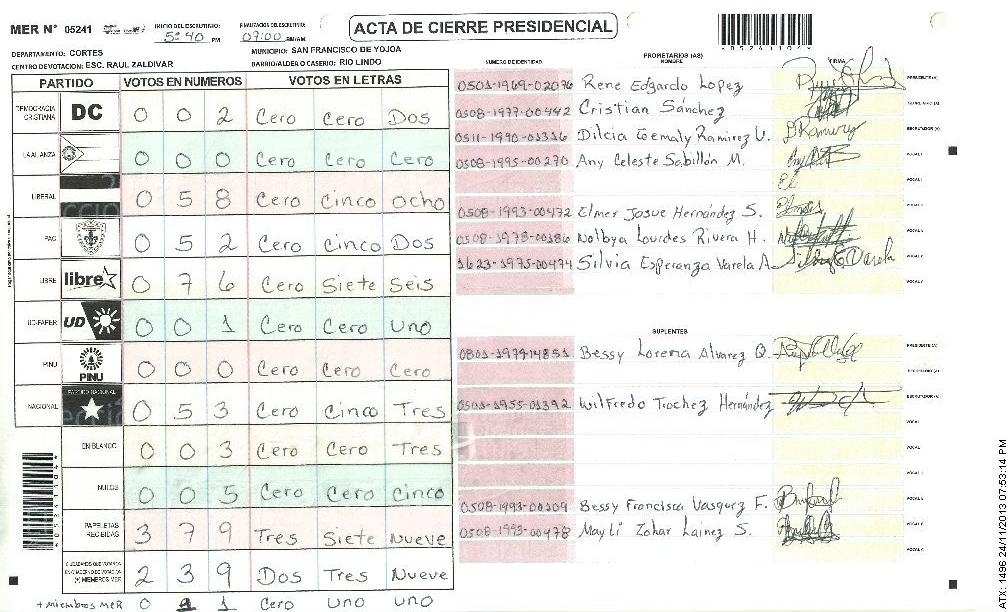 MER N° 05241
INICIO DEL ESCRUTINIO: 5:40 PM
FINALIZACION DEL ESCRUTINIO: 07:00 PM/AM.
ACTA DE CIERRE PRESIDENCIAL
DEPARTAMENTO: CORTES
MUNICIPIO: SAN FRANCISCO DE YOJOA
CENTRO DE VOTACION: ESC. RAUL ZALDIVAR
BARRIO/ALDEA O CASERIO: RIO LINDO
PARTIDO VOTOS EN NUMEROS VOTOS EN LETRAS
DEMOCRACIA CRISTIANA DC 0 0 2 Cero Cero Dos
LA ALIANZA 0 0 0 Cero Cero Cero
LIBERAL 0 5 8 Cero Cinco Ocho
PAC 0 5 2 Cero Cinco Dos
LIBRE libre 0 7 6 Cero Siete Seis
UD-FAPER UD 0 0 1 Cero Cero Uno
PINU PINU 0 0 0 Cero Cero Cero
NACIONAL PARTIDO NACIONAL 0 5 3 Cero Cinco Tres
EN BLANCO 0 0 3 Cero Cero Tres
NULOS 0 0 5 Cero Cero Cinco
PAPELETAS RECIBIDAS 3 7 9 Tres Siete Nueve
CIUDADANOS QUE VOTARON EN CUADERNO DE VOTACION (+) MIEMBROS MER 2 3 9 Dos Tres Nueve
+ Miembros MER 0 1 1 Cero Uno Uno
NUMERO DE IDENTIDAD PROPIETARIOS (AS) NOMBRE FIRMA
0501-1969-02096 Rene Edgardo Lopez PRESIDENTE (A)
0508-1977-00442 Cristian Sánchez SECRETARIO (A)
0511-1990-01316 Dilcia Ramirez V. ESCRUTADOR (A)
0508-1995-00270 Any Celeste Sabillón M. VOCAL I
VOCAL II
0508-1993-00472 Elmer Josue Hernández S.
0508-1978-00386 Nolbya Lourdes Rivera H.
1623-1975-00474 Silvia Esperanza Varela A
SUPLENTES
0801-1979-14851 Bessy Lorena Alvarez O. PRESIDENTE (A)
SECRETARIO (A)
0501-1955-01392 Wilfredo Trochez Hernández ESCRUTADOR (A)
VOCAL I
0508-1993-00109 Bessy Francisca Vasquez F.
0508-1993-00478 Mayli Zohar Lainez S.
ATX: 1496 24/11/2013 07:53:14 PM